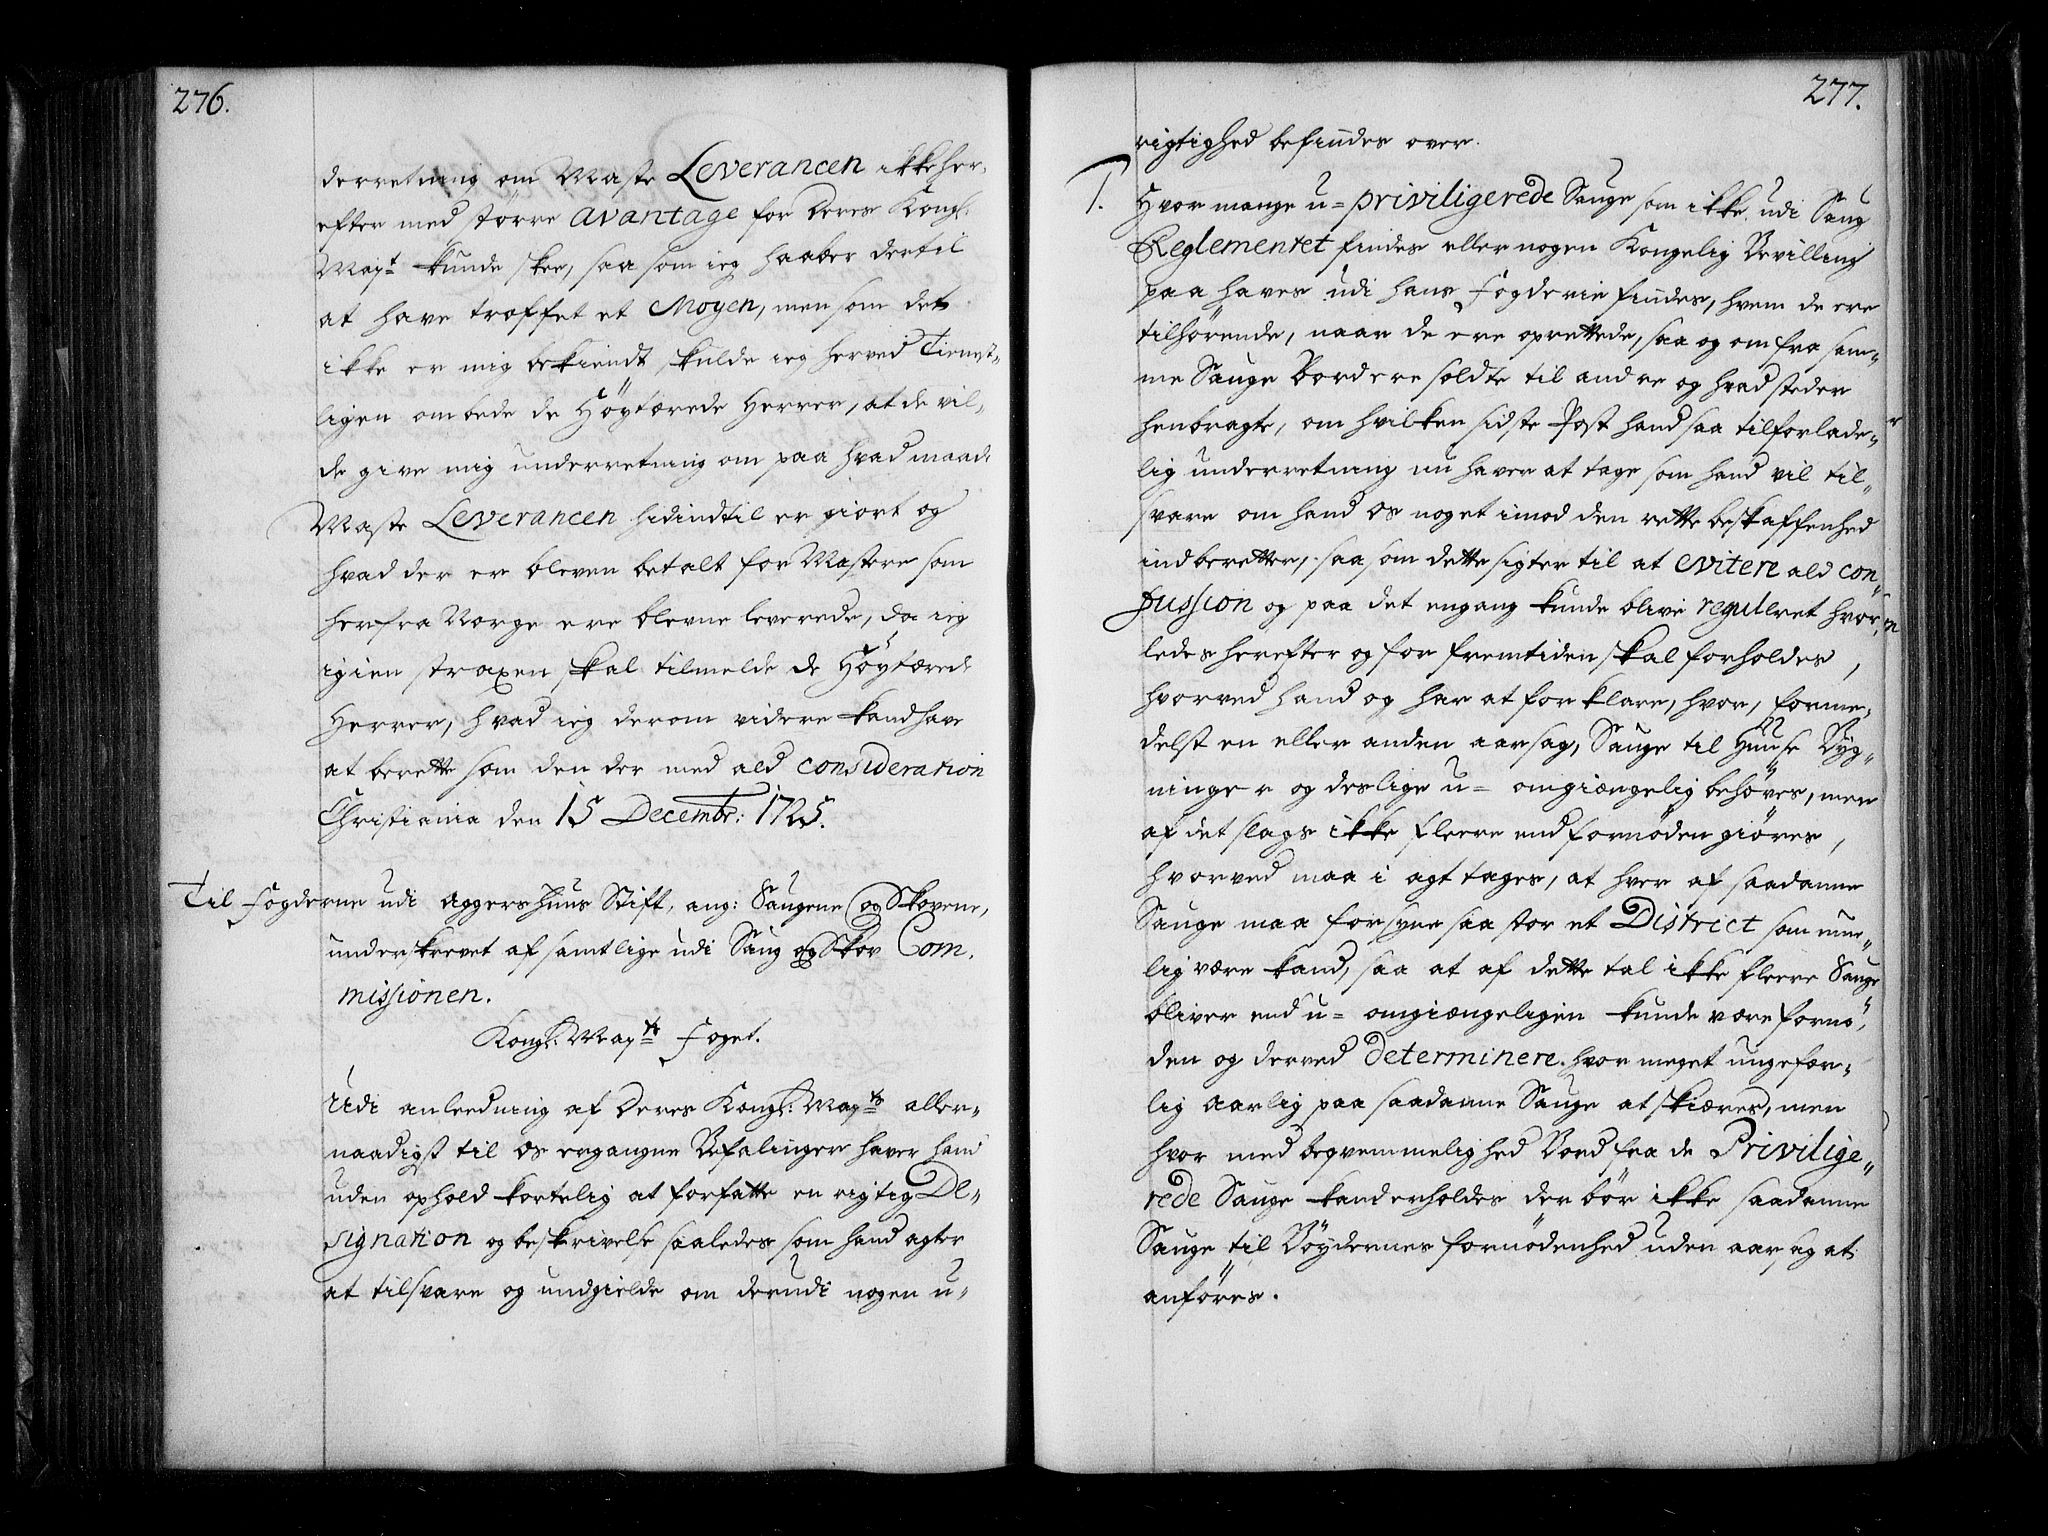 276.
derretning om Maste Leverancen ikke her-
efter med större avantage for Deres Kongl:
Mayt kunde skee, saa som ieg haaber dertil
at have troffet et Moyen, men som det
ikke er mig bekiendt skulde ieg herved Tienst-
ligen ombede de Höytærede Herrer, at de vil-
de give mig underretning om paa hvad maade
Maste Leverancen hidindtil er giort og
hvad der er bleven betalt for Mastere som
herfra Norge ere blevne leverede, da ieg
igien straxen skal tilmelde de Höytærede
Herrer, hvad ieg derom videre kand have
at berette som den der med ald consideration
Christiania den 15 Decembr: 1725.
Til Fogderne udi Aggershuus Stift, ang: Saugene og Skovene,
underskrevet af samtlige udi Saug og Skov Com-
missionen.
Kongl: Mayts Foget.
Udi anleedning af Deres Kongl: Mayts aller-
naadigst til os ergangne Befalinger haver hand
uden ophold kortelig at forfatte en rigtig De-
signation og beskrivelse saaledes som hand agter
at tilsvare og undgielde om derudi nogen u-
277.
rigtighed befindes over.
1. Hvor mange u-priviligerede Sauge som ikke udi Saug
Reglementet findes eller nogen Kongelig Bevilling
paa haves udi hans Fogderie findes, hvem de ere
tilhörende, naar de ere oprettede, saa og om fra sam-
me Sauge Bord ere soldte til andre og hvad steder
henbragte, om hvilken sidste Post hand saa tilforlade-
lig underretning nu haver at tage som hand vil til-
svare om hand os noget imod den rette beskaffenhed
indberetter, saa som dette sigter til at evitere ald con-
fussion og paa det engang kunde blive reguleret hvor-
ledes herefter og for fremtiden skal forholdes,
hvorved hand og har at forklare, hvor, forme-
delst en eller anden aarsag, Sauge til Huuse Byg-
ninger og deslige u-omgiængelig behöves, men
af det slags ikke fleere end fornöden giöres,
hvorved maa i agt tages, at hver af saadanne
Sauge maa forsyne saa stor et District som mue-
lig være kand, saa at af dette tal ikke fleere Sauge
bliver end u-omgiængeligen kunde være fornö-
den og derved determinere hvor meget ungefær-
lig aarlig paa saadanne Sauge at skiæres, men
hvor med beqvemmelighed Bord fra de Privilige-
rede Sauge kand erholdes der bör ikke saadanne
Sauge til Böydernes fornödenhed uden aarsag at
anföres.